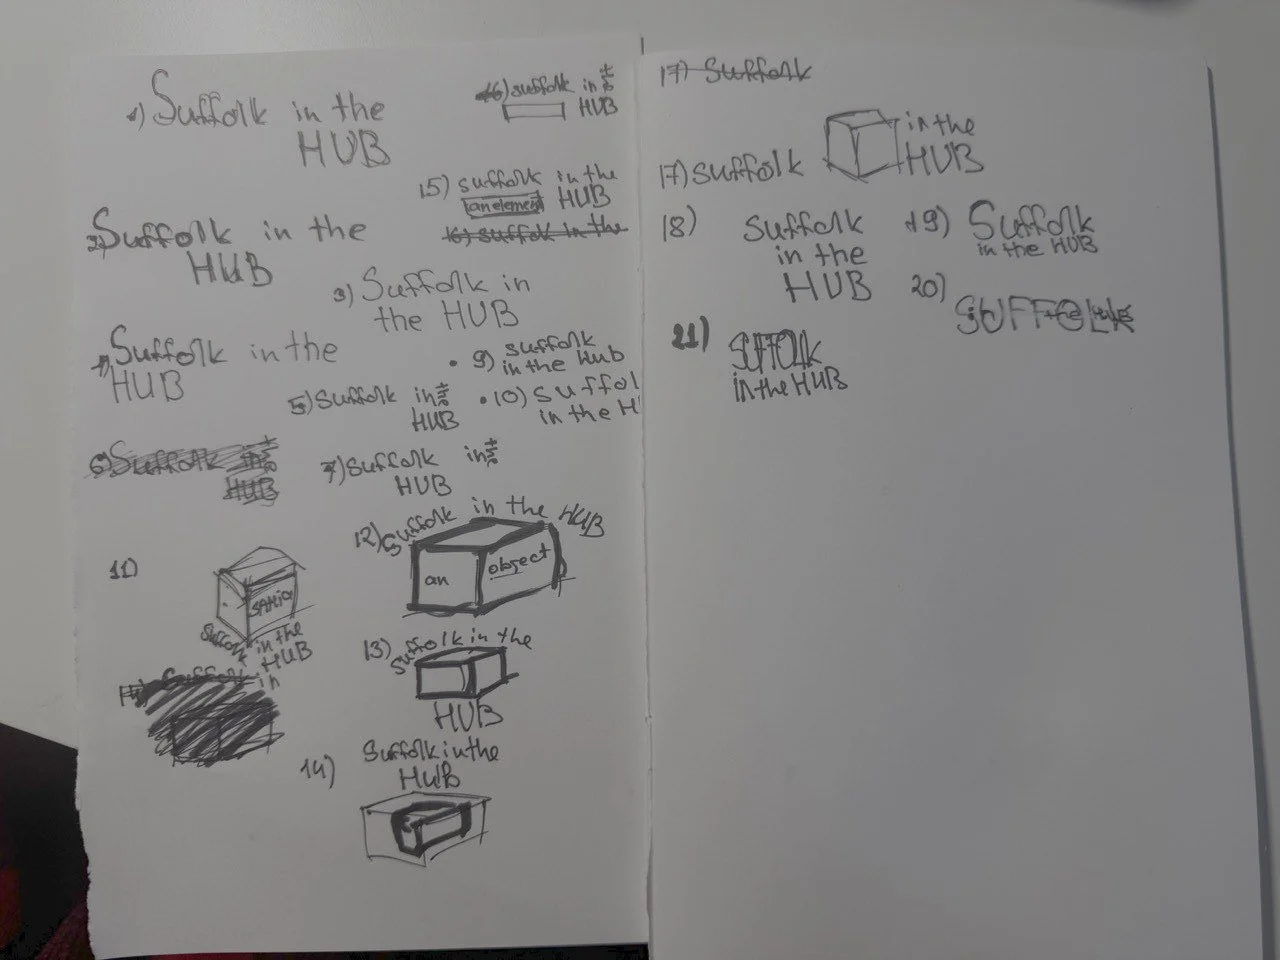 1) Suffolk in the
HUB
2) Suffolk in the
HUB
3) Suffolk in
the HUB
4) Suffolk in the
HUB
5) Suffolk in the
HUB
6) Suffolk in the
HUB
7) Suffolk in the
HUB
9) Suffolk
in the Hub
10) Suffol
in the H
11)
Suffolk
in the
HUB
12) Suffolk in the HUB
an object
13) Suffolk in the
HUB
14) Suffolk in
14) Suffolk in the
HUB
15) Suffolk in the
an element HUB
16) Suffolk in the
16) Suffolk in the
HUB
17) Suffolk
17) Suffolk in the
HUB
18) Suffolk
in the
HUB
19) Suffolk
in the HUB
20)
SUFFOLK
21) SUFFOLK
in the HUB